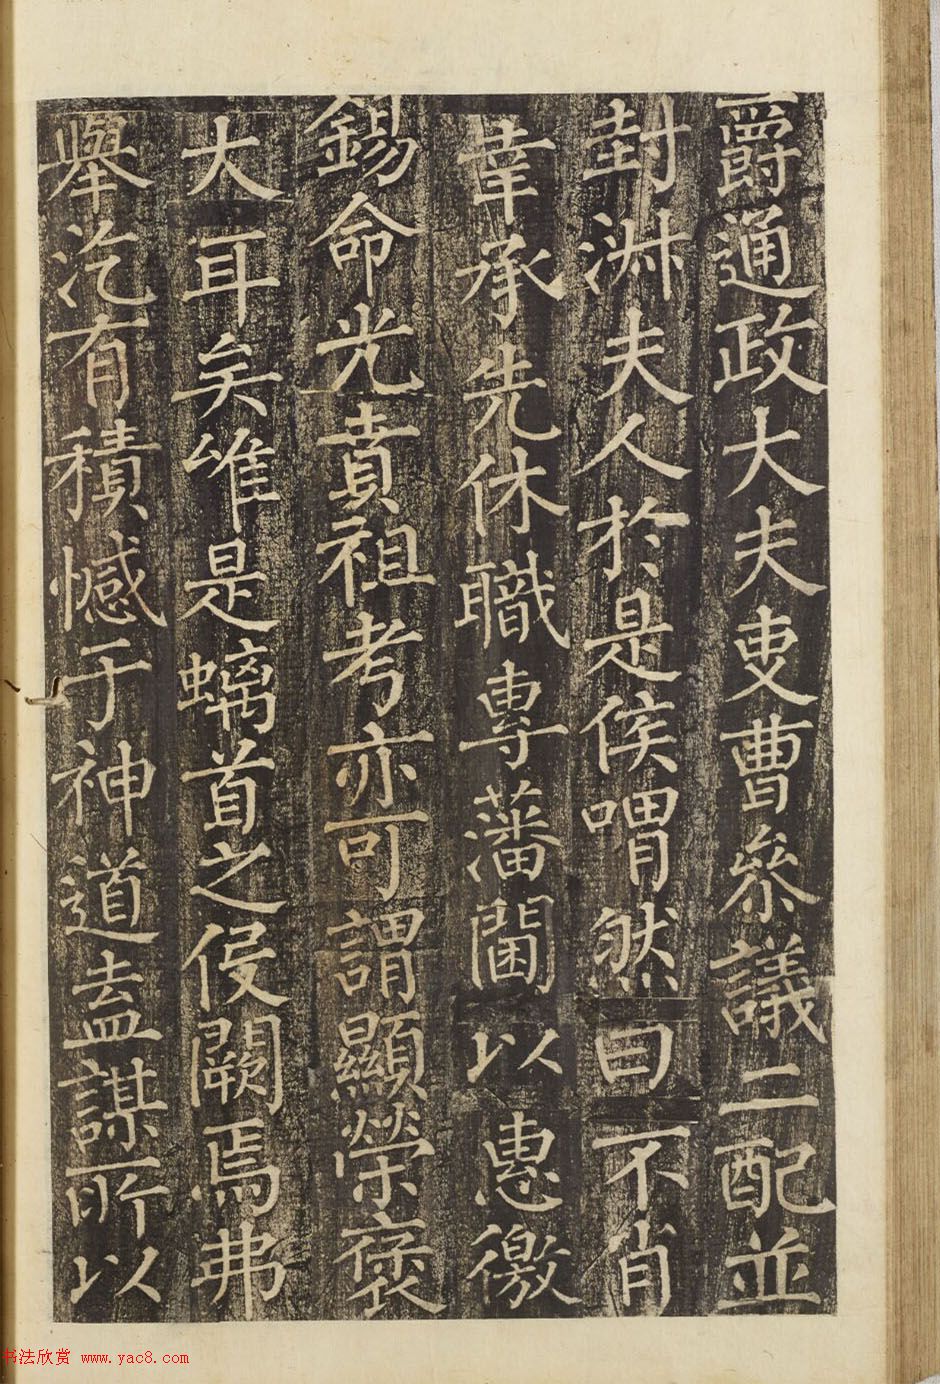 爵通政大夫吏曹參議二配並
封淑夫人於是侯喟然曰不肖
幸承先休職專藩閫以惠徼
錫命光賁祖考亦可謂顯榮褒
大耳矣唯是螭首之侵闕焉弗
舉汔有積憾于神道盍謀所以
书法欣赏 www.yac8.com